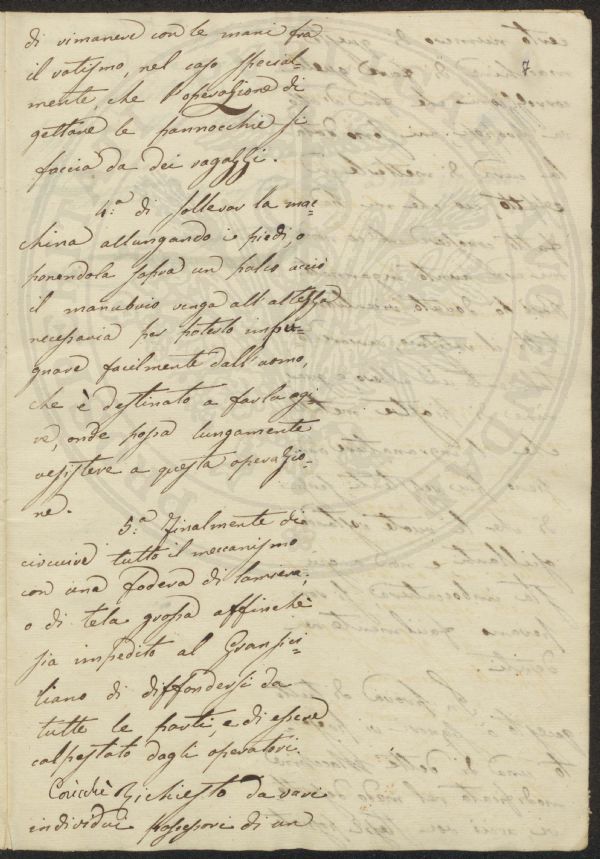 7
di rimanere con le mani fra
il rotismo, nel caso special-
mente, che l'operazione di
gettare le pannocchie si
faccia da dei ragazzi.
4.ª di sollevar la mac-
china allungando i piedi, o
ponendola sopra un palco acciò
il manubrio venga all'altezza
necessaria per poterlo impu-
gnare facilmente dall'uomo,
che è destinato a farla agi-
re, onde possa lungamente
resistere a questa operazio-
ne.
5.ª Finalmente di
circuire tutto il meccanismo
con una fodera di lamiera,
o di tela grossa affinchè
sia impedito al Gransici-
liano di diffondersi da
tutte le parti, e di essere
calpestato dagli operatori.
Cosicchè Richiesto da vari
individui possessori di un